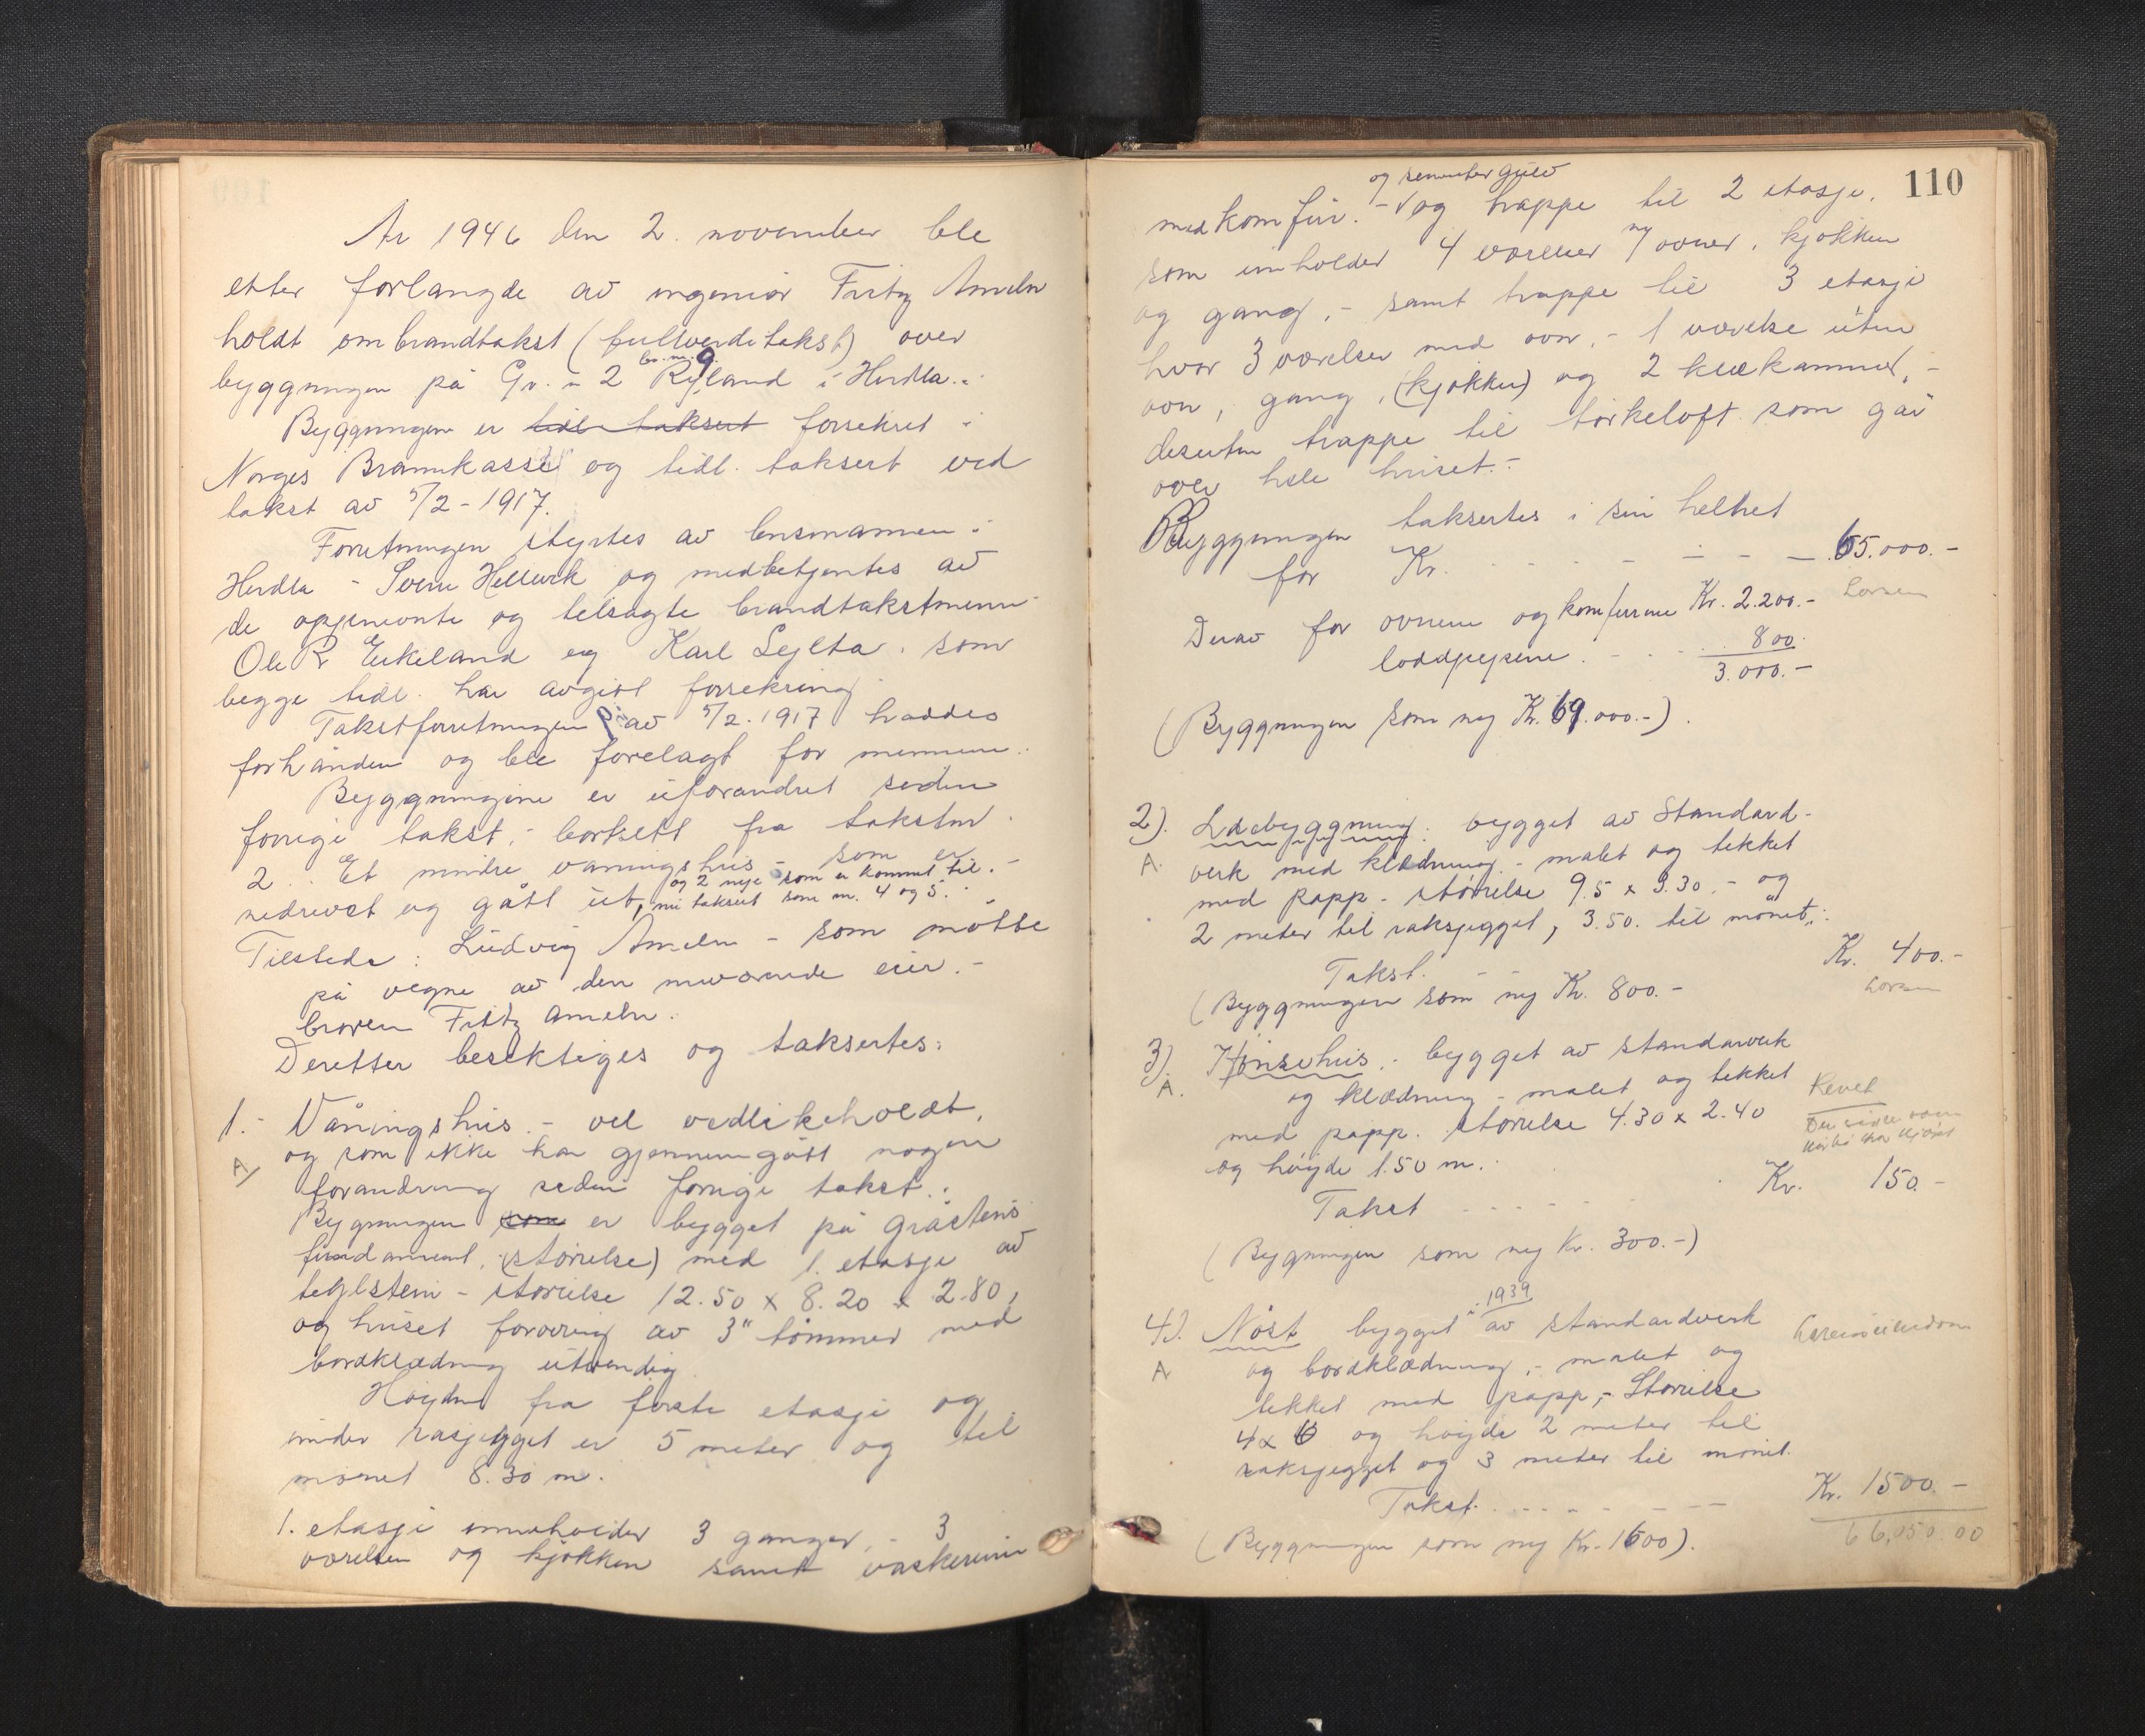 År 1946 den 2. november ble
etter forlangde av ingeniør Fritz Ameln
holdt ombrandtakst (fullverditakst) over
br. nr. 9.
bygningen på Gr. nr 2 Ryland i Herdla.
Byggningen er tidl. taksert forsekret i
Norges Brannkasse og tidl. taksert ved
takst av 5/2-1917.
Forretningen styrtes av lensmannen i
Herdla - Sverre Hellevik og medbetjentes av
de oppnevnte og tilsagte brandtakstmenn
Ole R Eikeland og Karl Sylta. som
begge tidl. har avgitt forsekring
Takstforretningen av 5/2.1917 haddes
forhånden og ble forelagt for mennene.
Byggningene er uforandret siden
forrige takst, - bortsett fra takstnr.
2. Et mindre våningshus - som er
og 2 nye som er kommet til. -
nedrevet og gått ut, nu taksert som nr. 4 og 5.
Tilstede: Ludvig Ameln - som møtte
på vegne av den nuværende eier. -
broren Fritz Ameln.
Deretter besiktiges og taksertes:
1. - Våningshus. - vel vedlikeholdt,
A
og som ikke har gjennemgått nogen
forandring siden forrige takst.
Bygningen som er bygget på gråsteins
fundament, (størrelse) med 1. etasje av
teglstein - størrelse 12.50 x 8.20 x 2.80,
og huset forøvrig av 3" tømmer med
bordklædning utvendig.
Høyden fra første etasje og
under rasjegget er 5 meter og til
mønet 8.30 m.
1. etasje inneholder 3 ganger, - 3
værelser og kjøkken samt vaskerum
110
og sementer gulv
med komfur. - og trappe til 2 etasje.
som inneholder 4 værelser m/ ovner, kjøkken
og gang, - samt trappe til 3 etasje
hvor 3 værelser med ovn, - 1 værelse uten
ovn, gang, (kjøkken) og 2 klekammer, -
desuten trappe til tørkeloft som går
over hele huset. -
Byggningen taksertes i sin helhet
for Kr. - - - - - 65.000. -
Derav for ovnene og komfurene Kr. 2.200. -
loddpipene. - - 800.
3.000. -
(Byggningen som ny Kr. 69.000. -).
2). Ldebyggning: bygget av Standard-
A.
verk med klædning - malet og tekket
med papp. størrelse 9.5 x 3.30. - og
2 meter til raksjegget, 3.50. til mønet.
Takst. - - Kr. 400. -
(Byggningen som ny Kr. 800. -
3). Hønsehus. - bygget av standarverk
A.
og klædning - malet og tekket
Revet
med papp. størrelse 4.30 x 2.40
og høyde 1.50 m.
Takst - - - - Kr. 150. -
(Bygningen som ny Kr. 300. -)
i 1939
4). Nøst bygget av standardverk
A
og bordklædning, - malet og
tekket med papp, - Størrelse
4 x 6 og høyde 2 meter til
raksjegget og 3 meter til mønet.
Takst. - - - - Kr. 1500. -
66,050.00
(Byggningen som ny Kr. 1600).